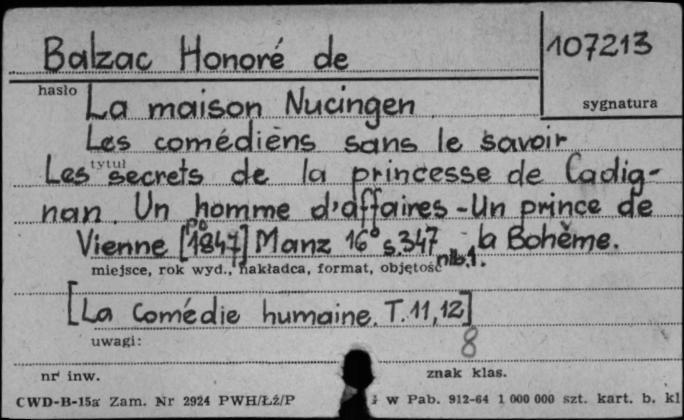 Balzac Honoré de
107213
hasło
sygnatura
La maison Nucingen
Les comédiens sans le savoir
tytuł
Les secrets de la princesse de Cadig-
nan. Un homme d'affaires - Un prince de
la Bohème.
Vienne [po 1847] Manz 16° s. 347
nlb. 1.
miejsce, rok wyd., nakładca, format, objętość
[La Comédie humaine. T. 11, 12]
uwagi:
8
nr inw.
znak klas.
CWD-B-15a Zam. Nr 2924 PWH/Łź/P
w Pab. 912-64 1 000 000 szt. kart. b. kl